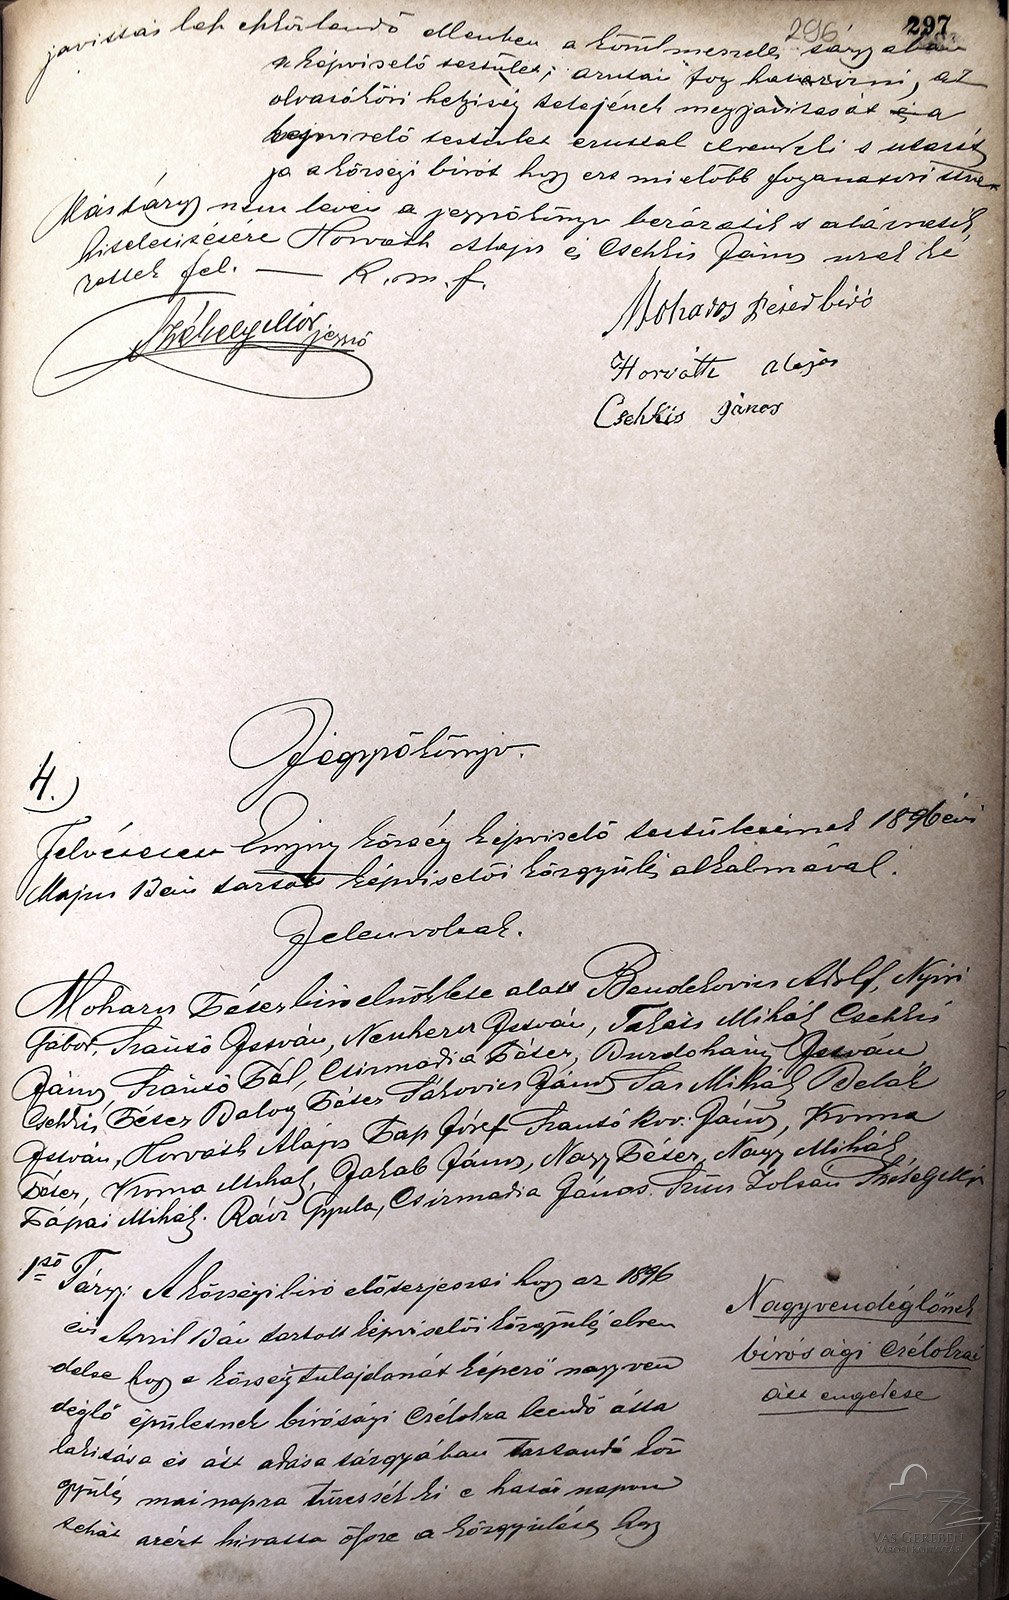 296 297
javittás lek eklőlendő ellenben a körülmesrels tárgyában
a képviselő testület; azutai fog határozni, az
olvasóköri helyiség tetejének megjavitását és a
képviselő testület ezuttal elrendeli s utasit
ja a községi birót hogy ezt mielőbb foganatositsa
Más tárgy nem levén a jegyzőkönyv bezáratik s aláiratik,
hitelesitésére Horváth Alajos és Csehkis János urak ké
rettek fel. — K. m. f.
Székely Mór jegyző
Moharos Péter biró
Horváth Alajos
Csehkis János
Jegyzőkönyv.
4.)
Felvétetett Enying község képviselő testületének 1896 évi
Majus 13án tartott képviselői közgyülés alkalmával.
Jelenvoltak.
Moharos Péter biró elnöklete alatt Bendekovics Adolf, Nyiri
Gábor, Szántó István, Neuherz István, Takáts Mihál Csehkis
János, Szántó Pál, Csizmadia Péter, Burdohány István
Csehkis Péter Balog Péter Lákovics János Sas Mihál Belák
István, Horváth Alajos Pap Jósef Szántó kov. János, Kroma
Péter, Kroma Mihál, Jakab János, Nagy Péter, Nagy Mihál,
Pápai Mihál. Rácz Gyula, Csizmadia János. Szüts Zoltán Székely Mór
1ső Tárgy. A községi biró előterjeszti hogy az 1896
évi April 13án tartott képviselői közgyülés elren
delte hogy a község tulajdonát képező nagyven
déglő épületnek birósági czélokra leendő átta
lakitása és átt adása tárgyában tartandó köz
gyülés mai napra tüzessék ki e határ napon
tehát azért hivatta össze a közgyülést, hogy
Nagyvendéglőnek
birósági czélokrai
átt engedése
VAS GEREBEN
VÁROSI KÖNYVTÁR